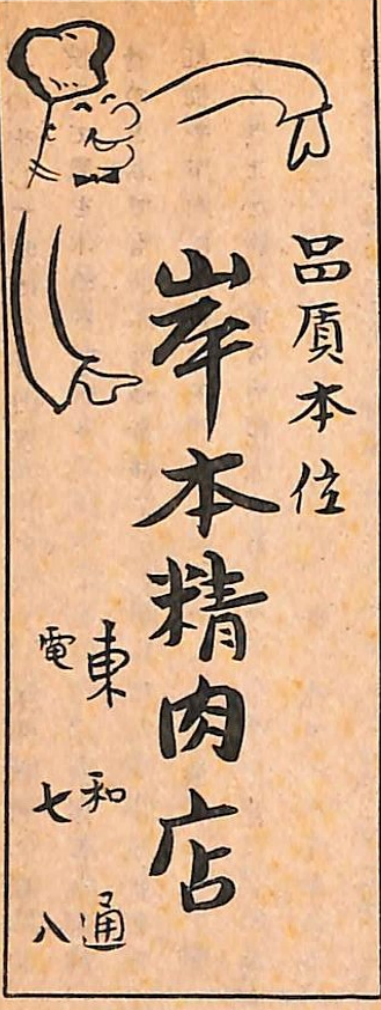 品質本位
岸本精肉店
東和通
電七八